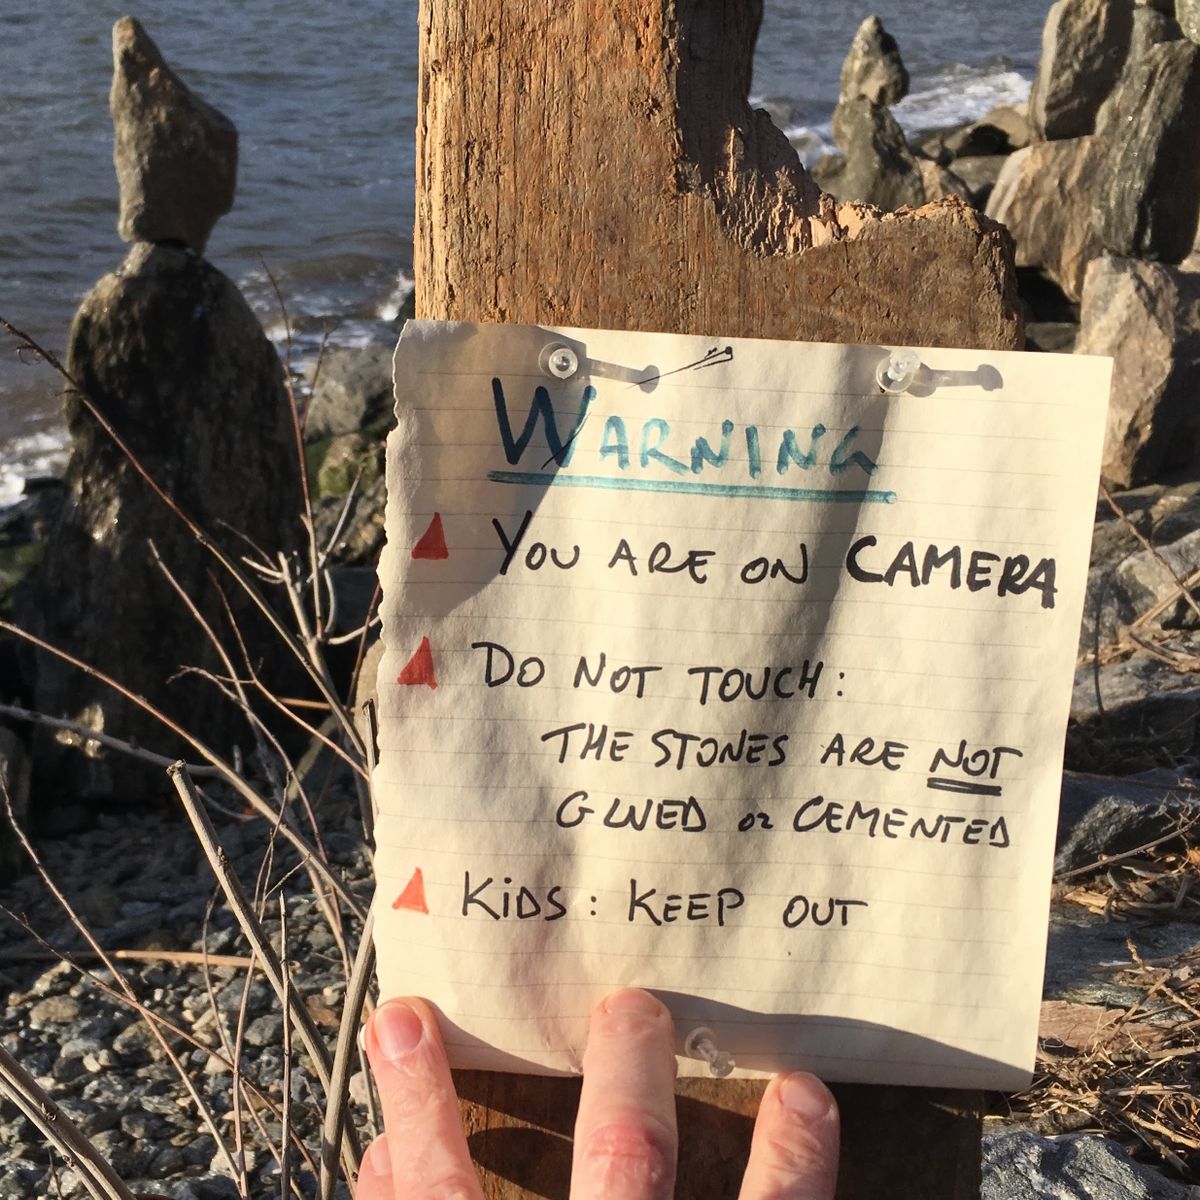 WARNING
YOU ARE ON CAMERA
DO NOT TOUCH:
THE STONES ARE NOT
GLUED OR CEMENTED
KiDS: KEEP OUT